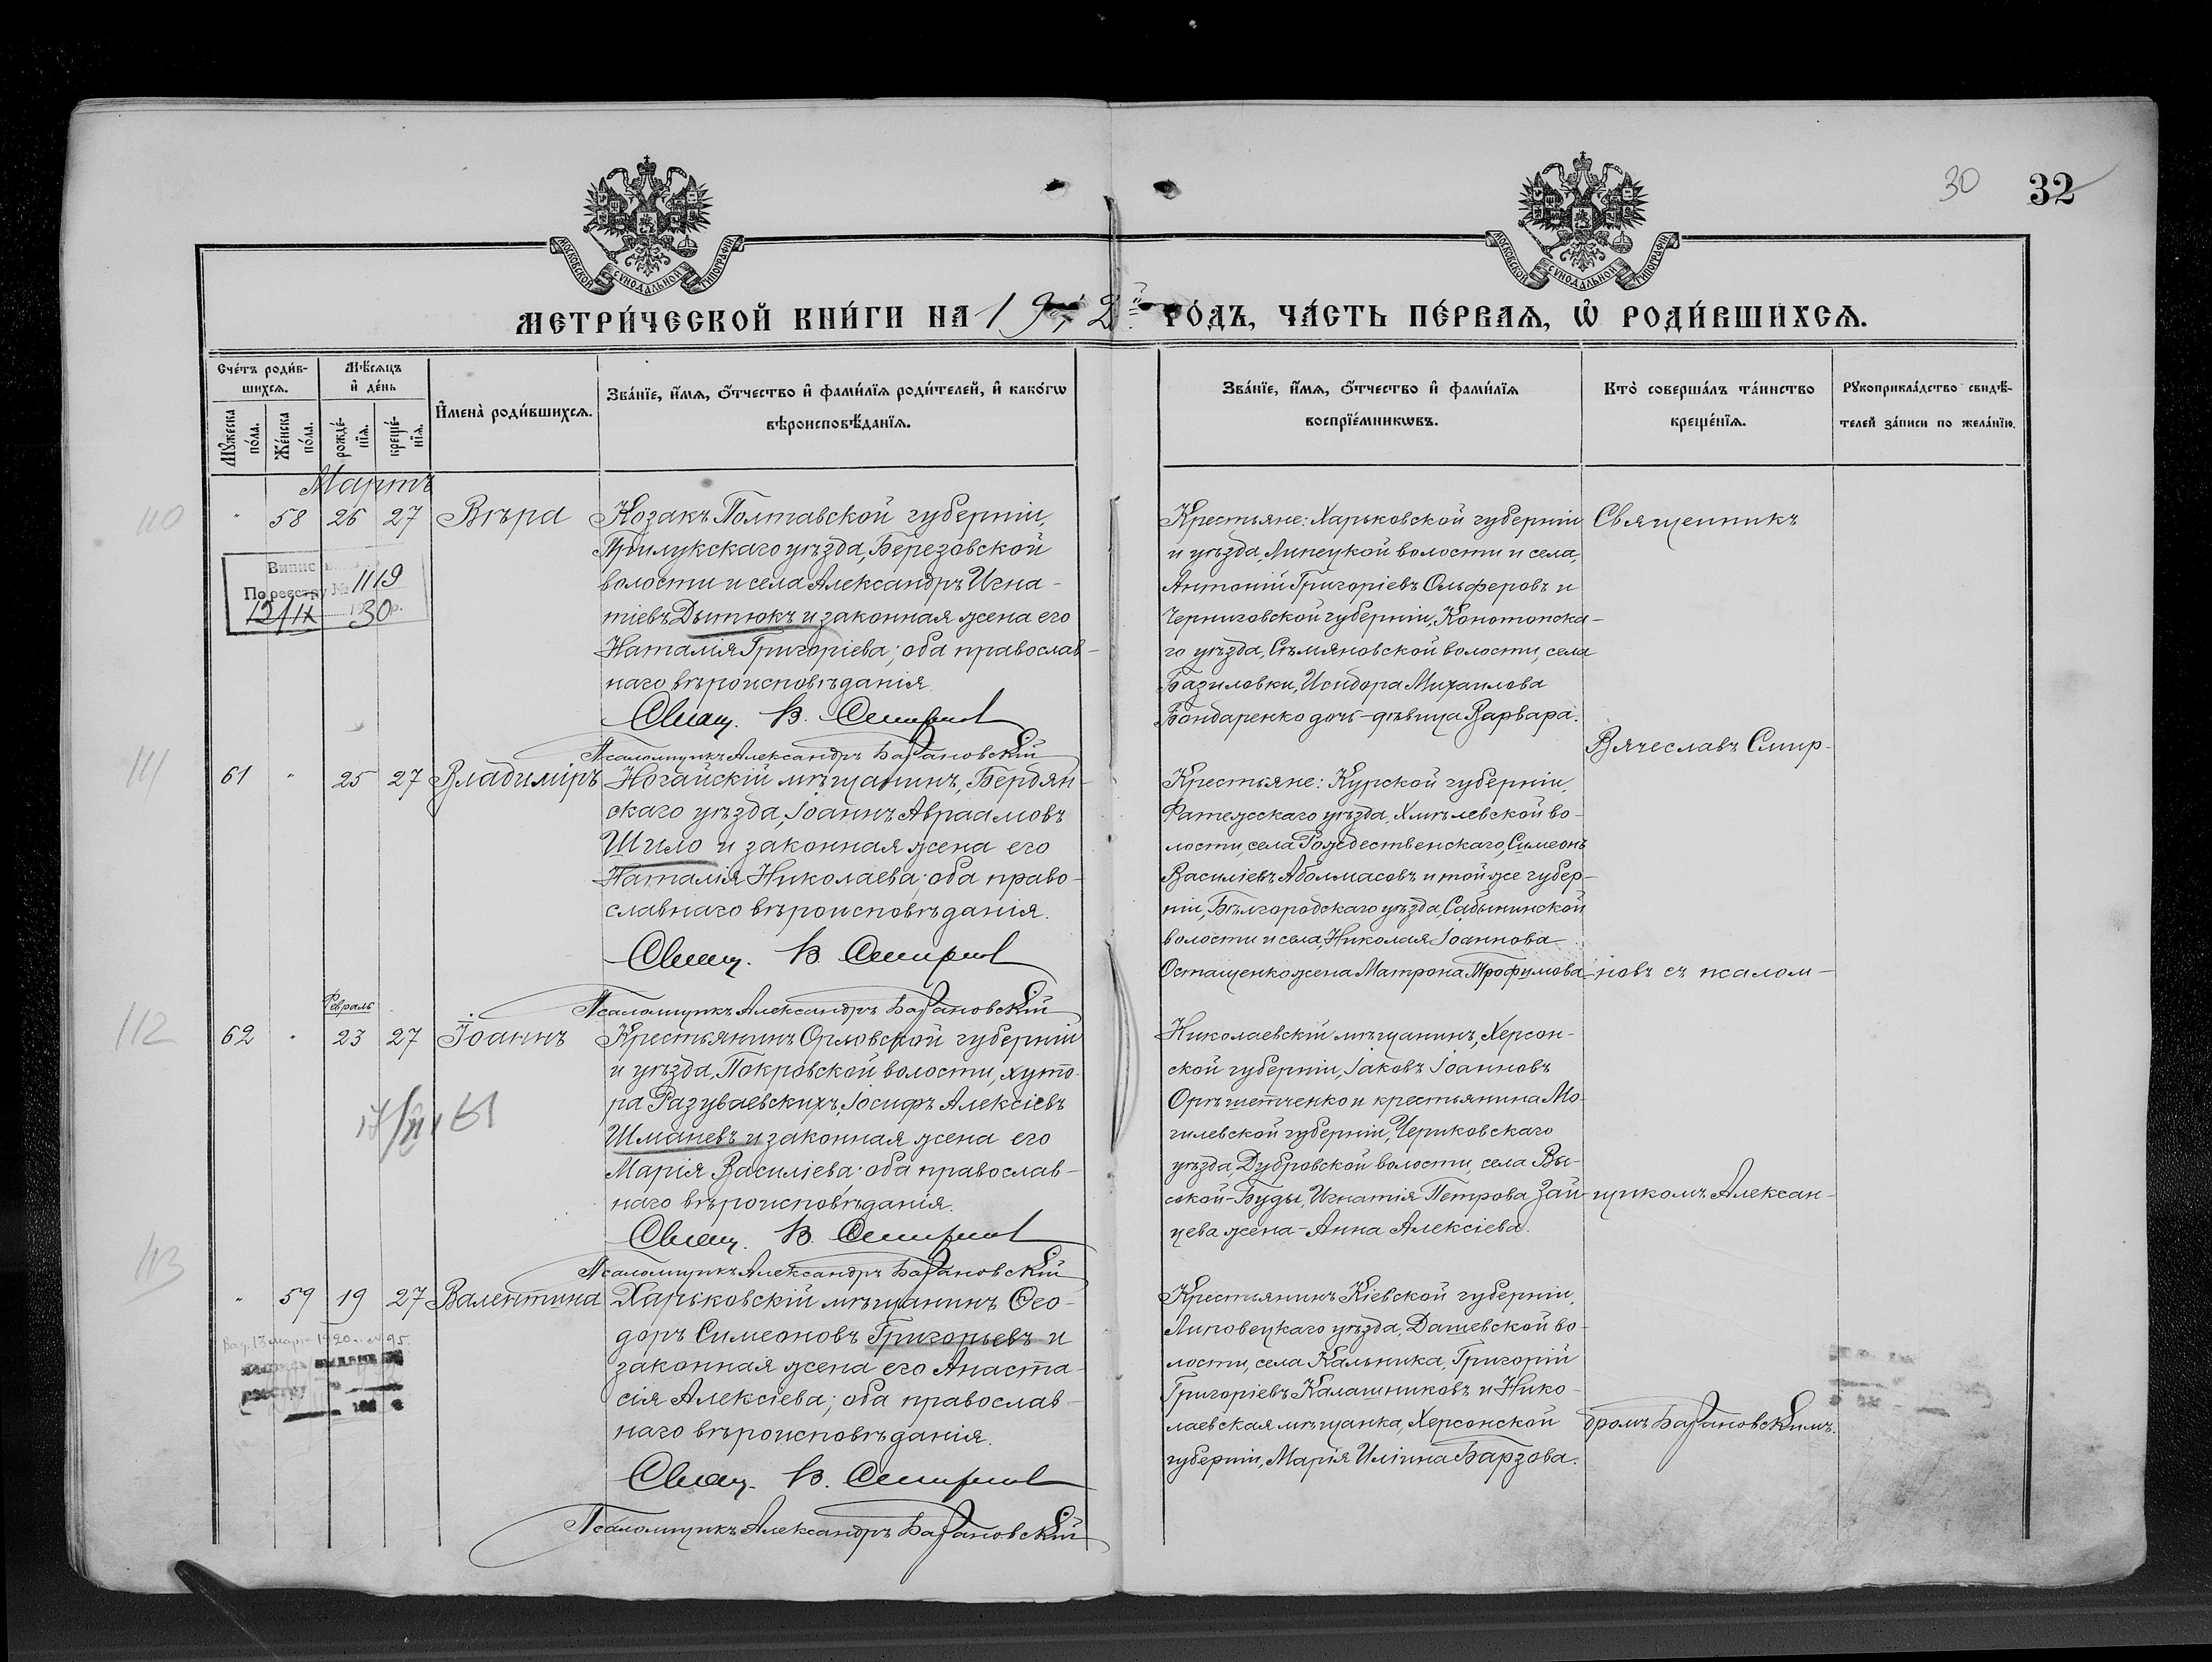 30 32
МОСКОВСКОЙ СУНОДАЛЬНОЙ ТИПОГРАФІИ
МОСКОВСКОЙ СУНОДАЛЬНОЙ ТИПОГРАФІИ
МЕТРИ́ЧЕСКОЙ КНИ́ГИ НА 19 2й ГО́ДЪ, ЧА́СТЬ ПЕ́РВАЯ, Ѡ҆ РОДИ́ВШИХСЯ.
Сче́тъ роди́в-
шихся.
Му́жеска по́ла.
Же́нска по́ла.
Мѣ́сяцъ
и҆ де́нь
рожде́-
нїя.
креще́-
нїя.
И҆мена̀ роди́вшихся.
Зва́нїе, и҆́мя, ѻ҆́тчество и҆ фами́лїя роди́телей, и҆ како́гѡ
вѣроисповѣ́данїя.
Зва́нїе, и҆́мя, ѻ҆́тчество и҆ фами́лїя
воспрїе́мникѡвъ.
Кто̀ соверша́лъ та́инство
креще́нїя.
Рꙋкоприкла́дство свидѣ́-
телей за́писи по жела́нїю.
Мартъ
110
" 58 26 27 Вѣра
Козакъ Полтавской губерніи,
Прилукскаго уѣзда, Березовской
волости и села Александръ Игна-
тіевъ Дытюкъ и законная жена его
Наталія Григоріева; оба православ-
наго вѣроисповѣданія.
Свящ. В. Смирнов
Псаломщикъ Александръ Барановскій
Крестьяне: Харьковской губерніи
и уѣзда, Липецкой волости и села,
Антоній Григоріевъ Ольферовъ и
Черниговской губерніи, Конотопска-
го уѣзда, Сѣмяновской волости, села
Базиловки, Исидора Михаилова
Бондаренко дочь-дѣвица Варвара.
Священникъ
Випис
По реєстру № 1119
12/IX 1930 р.
111
61 " 25 27 Владиміръ
Ногайскій мѣщанинъ, Бердян-
скаго уѣзда, Іоаннъ Авраамовъ
Шило и законная жена его
Наталія Николаева; оба право-
славнаго вѣроисповѣданія.
Свящ. В. Смирнов
Псаломщикъ Александръ Барановскій
Крестьяне: Курской губерніи,
Фатежскаго уѣзда, Хмѣлевской во-
лости, села Рождественскаго, Симеонъ
Василіевъ Аболмасовъ и той же губер-
ніи, Бѣлгородскаго уѣзда, Сабынинской
волости и села, Николая Іоаннова
Остащенко жена Матрона Трофимова
Вячеславъ Смир-
новъ съ псалом-
112
Февраль
62 " 23 27 Іоаннъ
Крестьянинъ Орловской губерніи
и уѣзда, Покровской волости, хуто-
ра Разуваевскихъ, Іосифъ Алексіевъ
Шманевъ и законная жена его
Марія Василіева; оба православ-
наго вѣроисповѣданія.
Свящ. В. Смирнов
Псаломщикъ Александръ Барановскій
Николаевскій мѣщанинъ, Херсон-
ской губерніи, Іаковъ Іоанновъ
Орѣшетченко и крестьянина Мо-
гилевской губерніи, Чериковскаго
уѣзда, Дубровской волости, села Вы-
сокой-Буды, Игнатія Петрова Зай-
цева жена - Анна Алексіева.
щикомъ Алексан-
113
" 59 19 27 Валентина
Харьковскій мѣщанинъ Ѳео-
доръ Симеоновъ Григорьевъ и
законная жена его Анаста-
сія Алексіева; оба православ-
наго вѣроисповѣданія.
Свящ. В. Смирнов
Псаломщикъ Александръ Барановскій
Крестьянинъ Кіевской губерніи,
Липовецкаго уѣзда, Дашевской во-
лости, села Кальника, Григорій
Григоріевъ Калашниковъ и Нико-
лаевская мѣщанка, Херсонской
губерніи, Марія Иліина Барзова.
дромъ Барановскимъ.